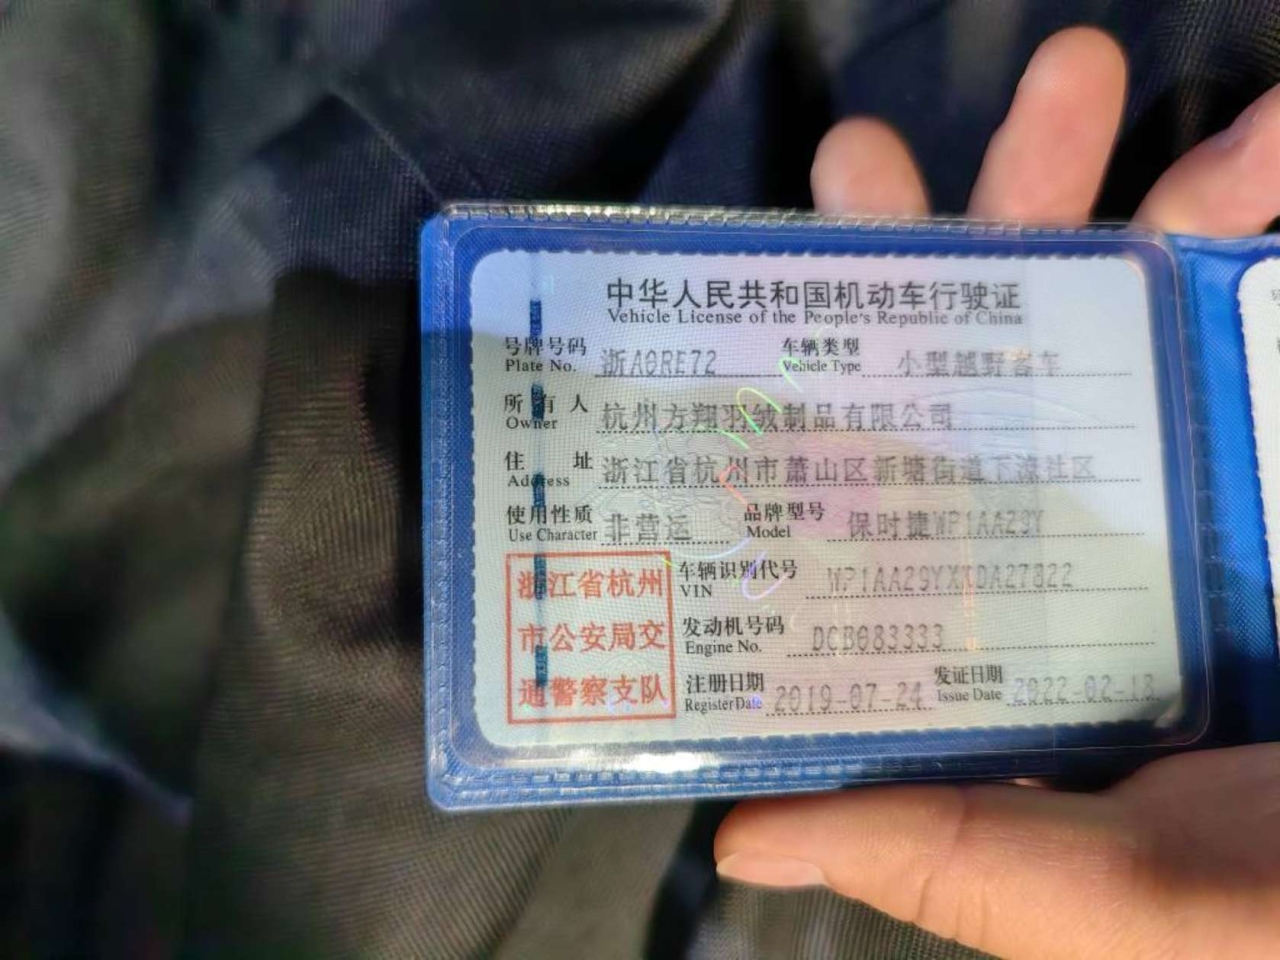 中华人民共和国机动车行驶证
Vehicle License of the People's Republic of China
号牌号码 浙A0RE72 车辆类型 小型越野客车
Plate No. Vehicle Type
所有人 杭州方翔羽绒制品有限公司
Owner
住址 浙江省杭州市萧山区新塘街道下涝社区
Address
使用性质 非营运 品牌型号 保时捷WP1AA29Y
Use Character Model
浙江省杭州 车辆识别代号
VIN
市公安局交 发动机号码 DCB083333
Engine No.
通警察支队 注册日期 2019-07-24 发证日期
Register Date Issue Date